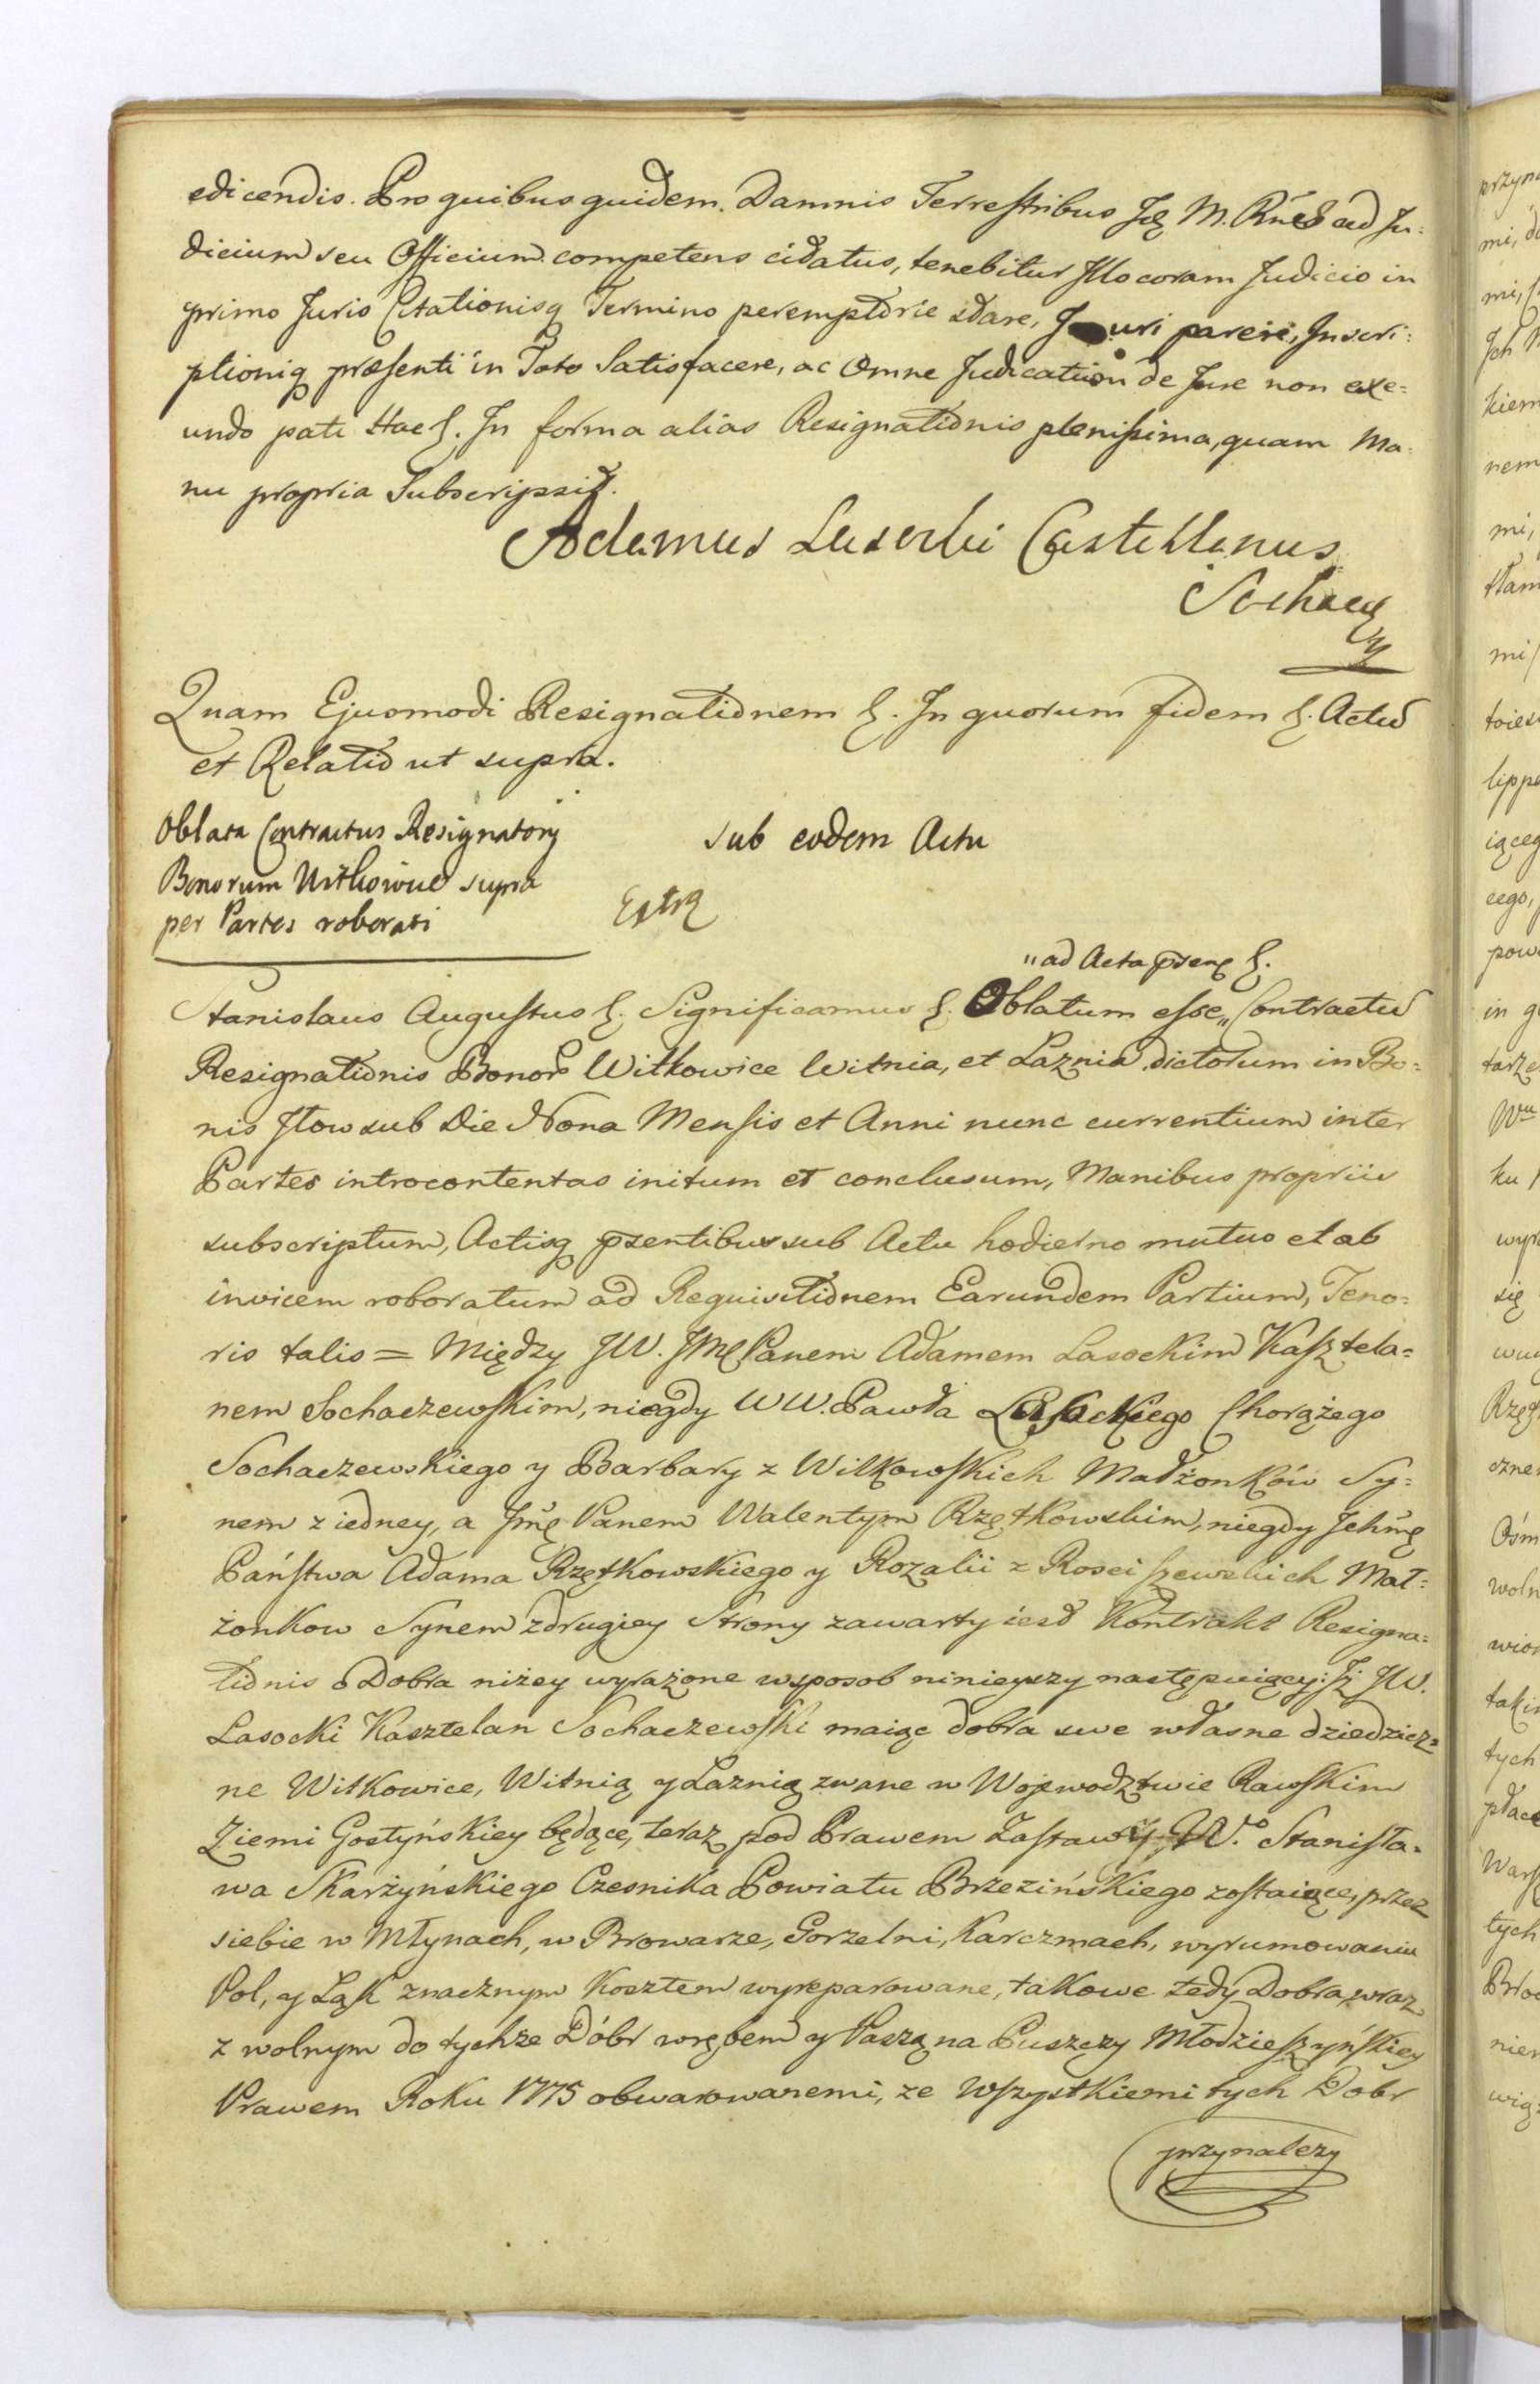 edicendis. Pro quibus quidem Damnis Terrestribus M. ad Ju=
dicium seu Officium competens citatus, tenebitur Illo coram Judicio in
primo Juris Citationisq Termino peremptorie stare, Juri parere, Inscri=
ptioniq præsenti in Toto Satisfacere, ac Omne Judicatum de Jure non exe=
undo pati Hac §. In forma alias Resignationis plenissima, quam Ma=
nu propria Subscripsit.
Adamus Lasocki Castellanus
Sochacz
Quam Ejusmodi Resignationem §. In quorum fidem §. Actū
et Relatio ut supra.
Oblata Contractus Resignatorij
Bonorum Witkowice supra
per Partes roborati
sub eodem Actu
Extr
„ad Acta §.
Stanislaus Augustus §. Significamus §. Oblatum esse„ Contractū
Resignationis Bonor Witkowice Witnia, et Laznia dictorum in Bo=
nis Iłow sub Die Nona Mensis et Anni nunc currentium inter
Partes introcontentas initum et conclusum, Manibus propriis
subscriptum, Actisq psentibus sub Actu hodierno mutuo et ab
invicem roboratum ad Requisitionem Earundem Partium, Teno=
ris talis = Między JW. Panem Adamem Lasockim Kasztela=
nem Sochaczewskim, niegdy WW. Pawła Lasockiego Chorążego
Sochaczewskiego y Barbary z Witkowskich Małżonków Sy=
nem z iedney, a Jmę Panem Walentym Rzętkowskim, niegdy Jchmę
Państwa Adama Rzętkowskiego y Rozalii z Rosciszewskich Mał=
żonkow Synem z drugiey Strony zawarty iest Kontrakt Resigna=
tionis o Dobra niżey wyrażone w sposob ninieyszy następuiący: Jż JW.
Lasocki Kasztelan Sochaczewski maiąc dobra swe własne dziedzicz=
ne Witkowice, Witnią y Laznią zwane w Wojewodztwie Rawskim
Ziemi Gostyńskiey będące, teraz pod Prawem Zastawy W.º Stanisła=
wa Skarżyńskiego Czesnika Powiatu Brzezińskiego zostaiące, przez
siebie w Młynach, w Browarze, Gorzelni, Karczmach, wyrumowaniu
Pol, y Ląk znacznym kosztem wyreparowane, takowe tedy Dobra, wraz
z wolnym do tychże Dóbr wrębem y Paszą na Puszczy Młodzieszyńskiey
Prawem Roku 1775 obwarowanemi, ze Wszystkiemi tych Dobr
przynalezy